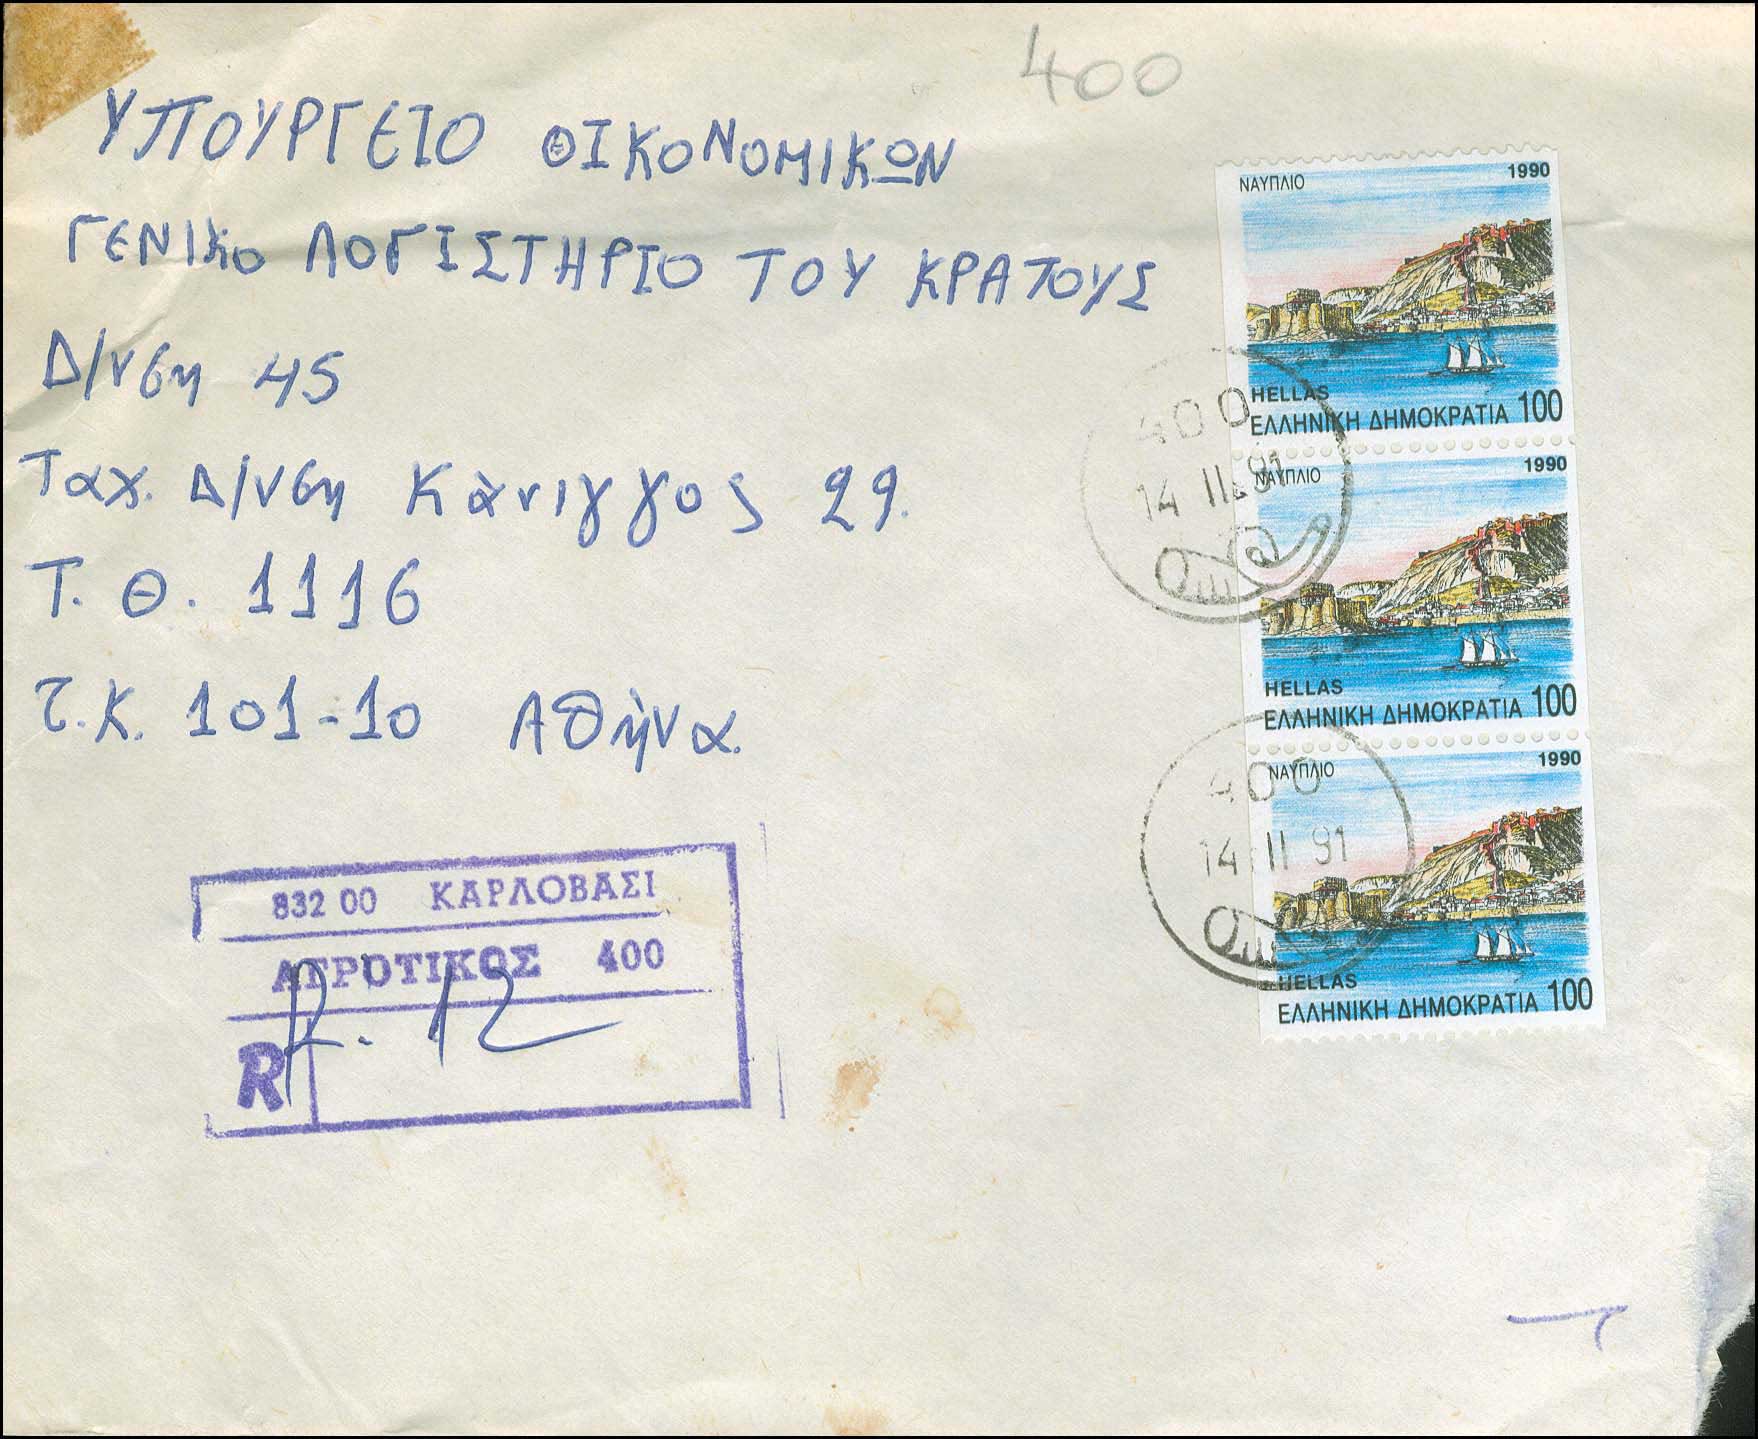 400
ΥΠΟΥΡΓΕΙΟ ΟΙΚΟΝΟΜΙΚΩΝ
ΓΕΝΙΚΟ ΛΟΓΙΣΤΗΡΙΟ ΤΟΥ ΚΡΑΤΟΥΣ
Δ/νση 45
Ταχ. Δ/νση Κάνιγγος 29.
Τ. Θ. 1116
Τ.Κ. 101-10 Αθήνα.
ΝΑΥΠΛΙΟ 1990
HELLAS
ΕΛΛΗΝΙΚΗ ΔΗΜΟΚΡΑΤΙΑ 100
400
14 II 91
ΝΑΥΠΛΙΟ 1990
HELLAS
ΕΛΛΗΝΙΚΗ ΔΗΜΟΚΡΑΤΙΑ 100
ΝΑΥΠΛΙΟ 1990
400
14 II 91
HELLAS
ΕΛΛΗΝΙΚΗ ΔΗΜΟΚΡΑΤΙΑ 100
832 00 ΚΑΡΛΟΒΑΣΙ
ΑΓΡΟΤΙΚΟΣ 400
R. 12
R